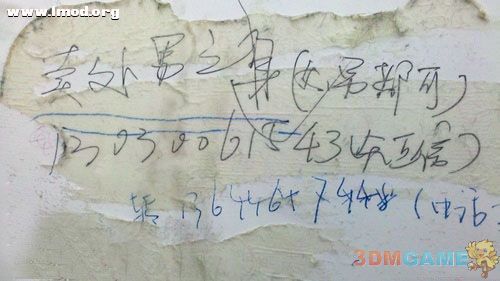 www.lmod.org
卖处男之身(女男都可)
13030061543(短信)
转 136446
3DMGAME